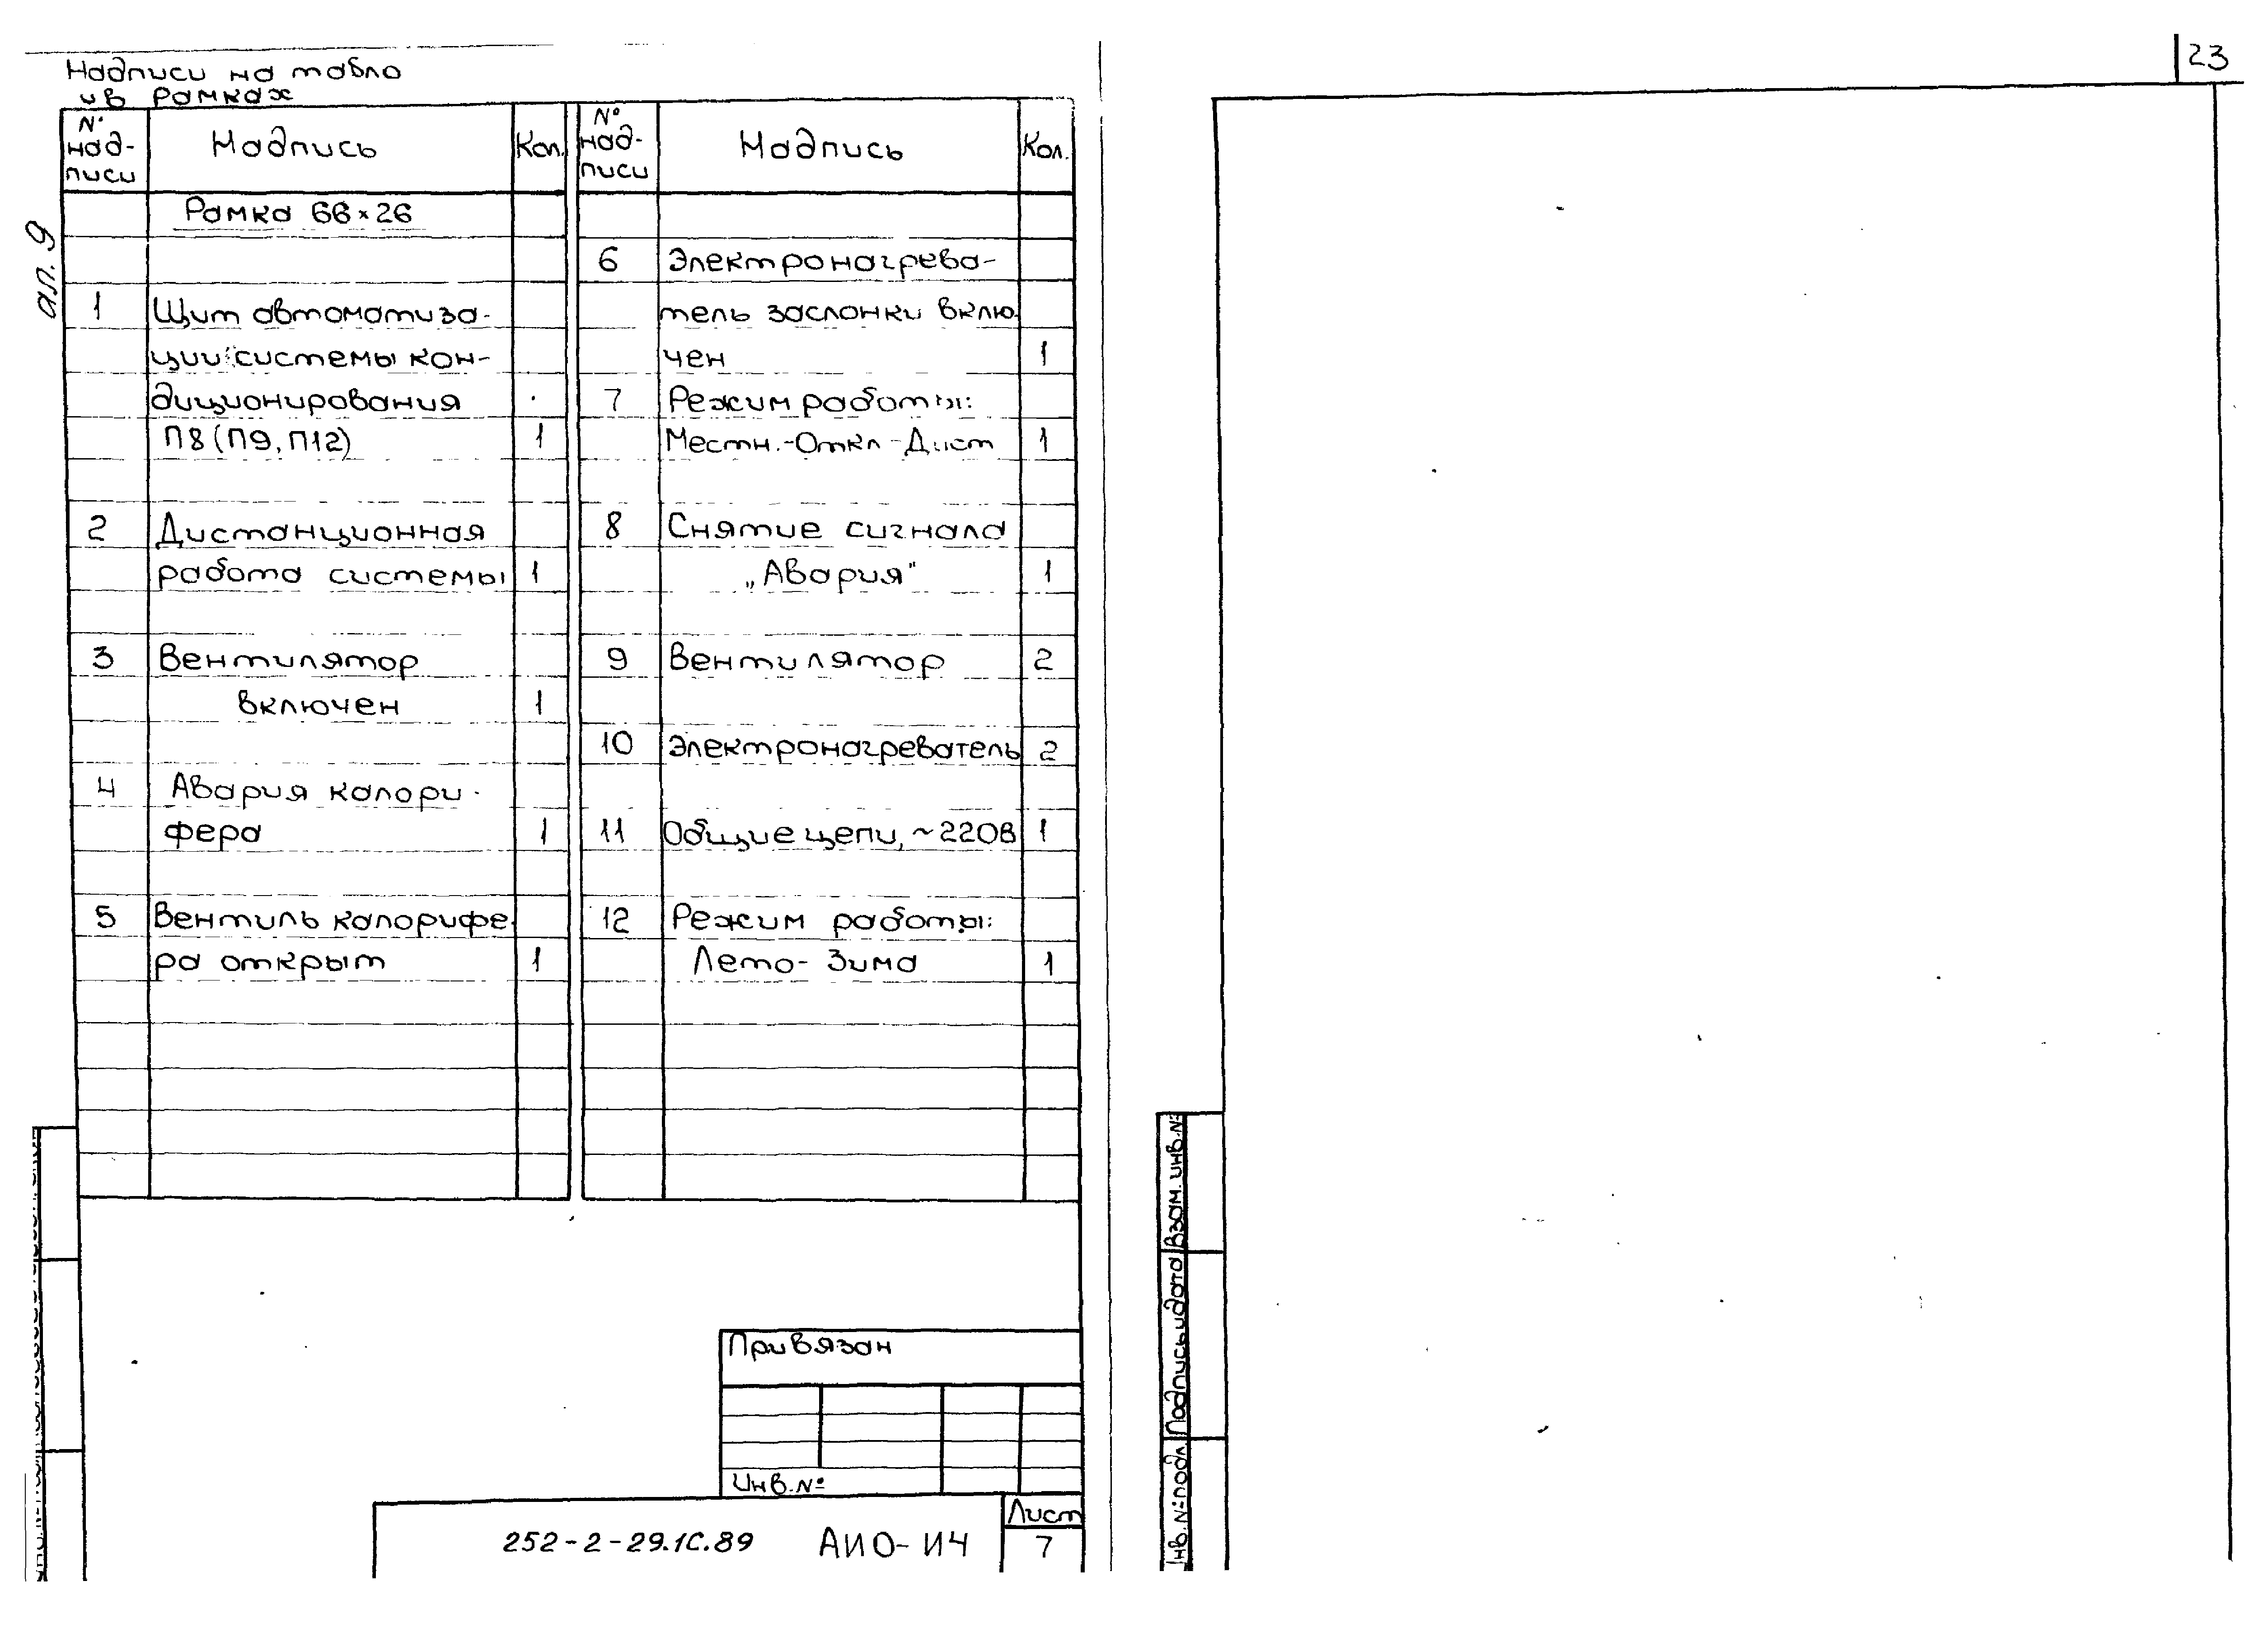 23
Надписи на табло
и в рамках
ал. 9
№ над-
писи
Надпись
Кол.
Рамка 66×26
1 Щит автоматиза-
ции системы кон-
диционирования
П8 (П9, П12) 1
2 Дистанционная
работа системы 1
3 Вентилятор
включен 1
4 Авария калори-
фера 1
5 Вентиль калорифе-
ра открыт 1
№ над-
писи
Надпись
Кол.
6 Электронагрева-
тель заслонки вклю-
чен 1
7 Режим работы:
Местн.-Откл-Дист 1
8 Снятие сигнала
„Авария" 1
9 Вентилятор 2
10 Электронагреватель 2
11 Общие цепи, ~220В 1
12 Режим работы:
Лето-Зима 1
Привязан
Инв. №
252-2-29.1С.89 АИО-И4
Лист
7
Взам. инв. №
Подпись и дата
Инв. № подл.